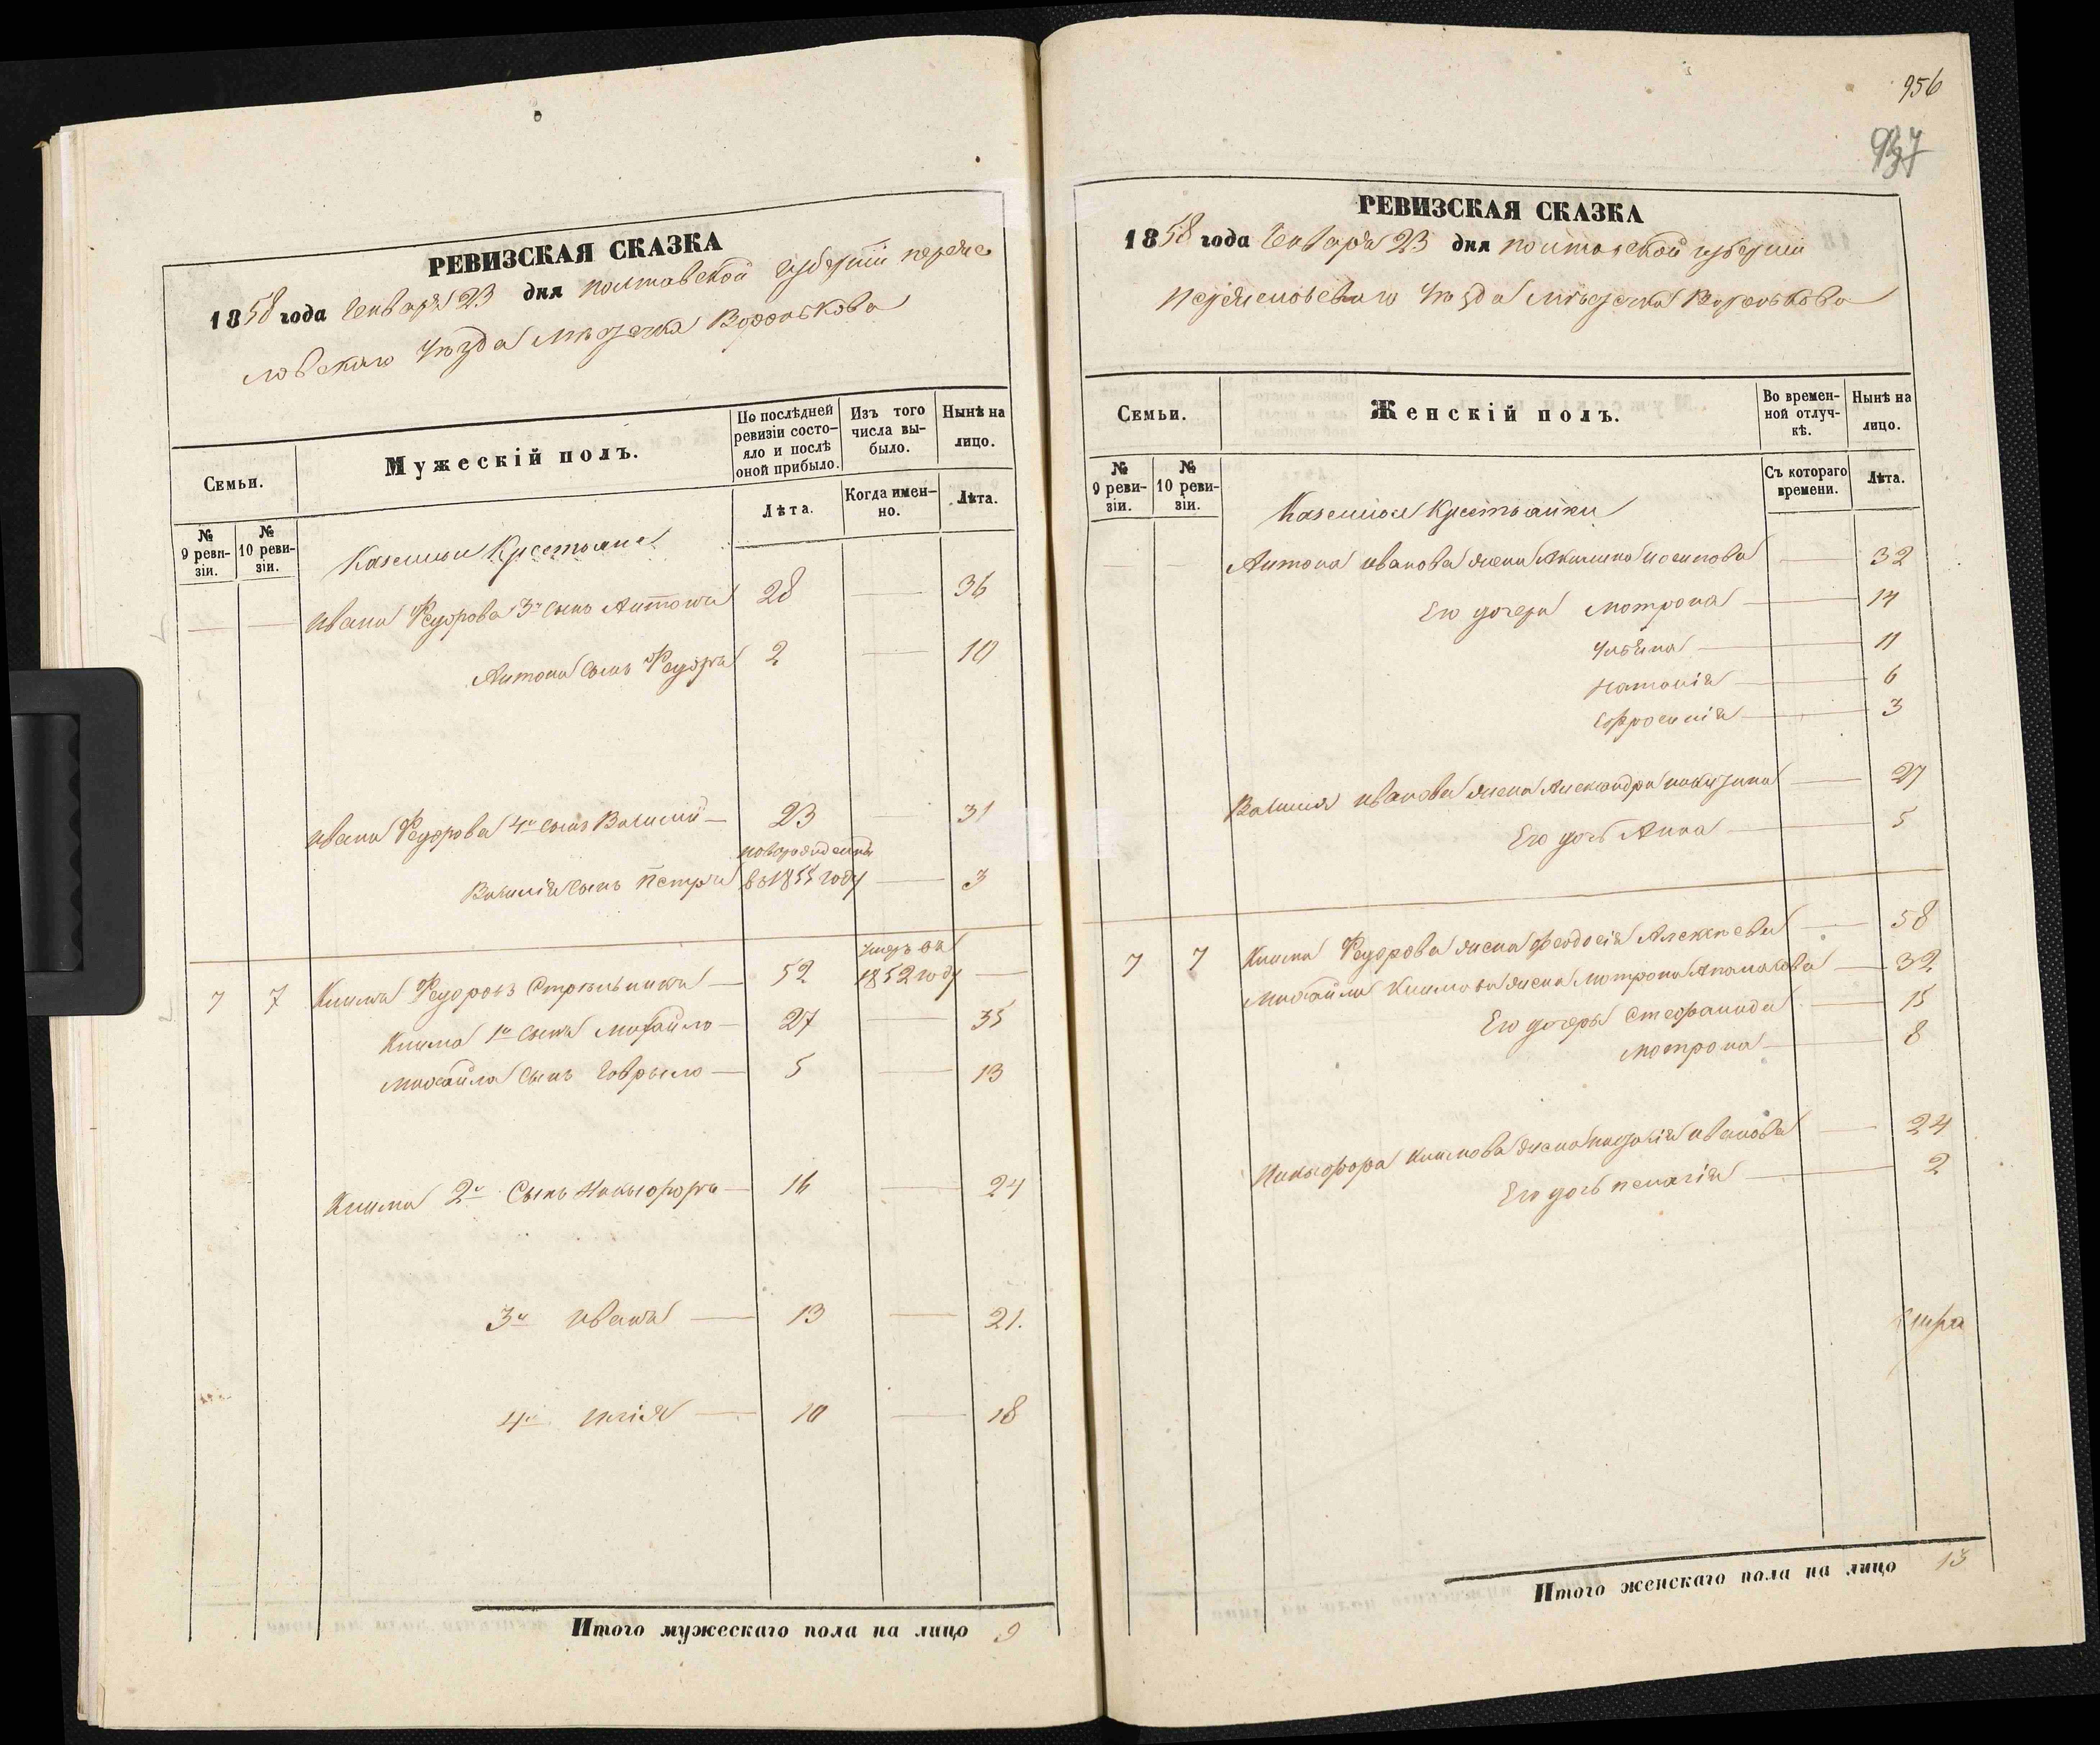 РЕВИЗСКАЯ СКАЗКА
1858 года Генваря 23 дня полтавской губернии переяс
ловского уезда местечка Воронькова
Семьи.
Мужескій полъ.
По послѣдней ревизіи состояло и послѣ оной прибыло.
Изъ того числа выбыло.
Нынѣ на лицо.
№ 9 ревизіи.
№ 10 ревизіи.
Лѣта.
Когда именно.
Лѣта.
Казенныи Крестьяне
Ивана Федорова 3й сынъ Антонъ 28 — 36
Антона сынъ Федоръ 2 — 10
Ивана Федорова 4й сынъ Василий — 23 — 31
новорожденный
Василія сынъ Петръ в 1855 году — 3
умеръ въ
7 7 Клима Федоровъ Стрельника — 52 1852 году —
Клима 1й сынъ Михайло — 27 — 35
Михайла сынъ Говрыло — 5 — 13
Клима 2й Сынъ Никыфоръ — 16 — 24
3й иванъ — 13 — 21.
4й илія — 10 — 18
Итого мужескаго пола на лицо 9
956
937
РЕВИЗСКАЯ СКАЗКА
1858 года Генваря 23 дня полтавской губернии
переясловского уезда местечка Воронькова
Семьи.
Женскій полъ.
Во временной отлучкѣ.
Нынѣ на лицо.
№ 9 ревизіи.
№ 10 ревизіи.
Съ котораго времени.
Лѣта.
Казенныи Крестьянки
Антона иванова жена Акилина Иосипова — 32
Его дочери мотрона — 14
Ульяна — 11
Наталия — 6
Ефросиния — 3
Василия иванова жена Александра — 27
Его дочь Анна — 5
7 7 Клима Федорова жена феодосія Алексѣева — 58
Михайла Климова жена мотрона — 32
Его дочеры Стефанида — 15
мотрона — 8
Никыфора Климова жена иванова — 24
Его дочь пелагія — 2
Итого женскаго пола на лицо 13